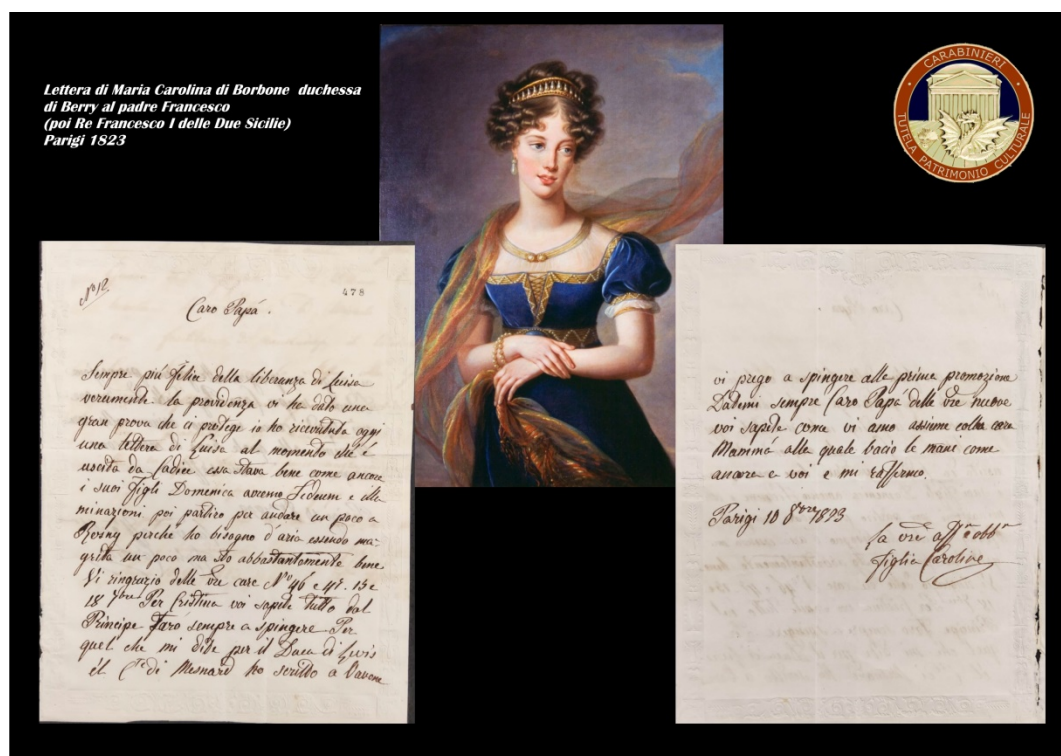 Lettera di Maria Carolina di Borbone duchessa
di Berry al padre Francesco
(poi Re Francesco I delle Due Sicilie)
Parigi 1823
CARABINIERI
TUTELA PATRIMONIO CULTURALE
N° 12
478
Caro Papá.
Sempre piú felice della liberanza di Luisa
veramente la providenza vi ha dato una
gran prova che ci protege io ho ricevuta oggi
una lettera di Luisa al momento ch'é
uscita da Cadice essa stava bene come ancora
i suoi figli Domenica avremo Tedeum e
minazioni poi partiro per andare un poco a
Rosny perche ho bisogno d'aria essendo ma-
grita un poco ma sto abbastantemente bene
Vi ringrazio delle vre care Nº 46 e 47. 15 e
18 7bre Per Cristina voi sapete tutto dal
Principe Faró sempre a spingere Per
quel che mi dite per il Duca di
il Cte di Mesnard ho scritto a
vi prego a spingere alla prima promozione
Datemi sempre Caro Papá delle vre nuove
voi sapete come vi amo assieme colla cara
Mammá alla quale bacio le mani come
ancora a voi e mi raffermo.
Parigi 10 8bre 1823
La vra affma obbma
figlia Caroline